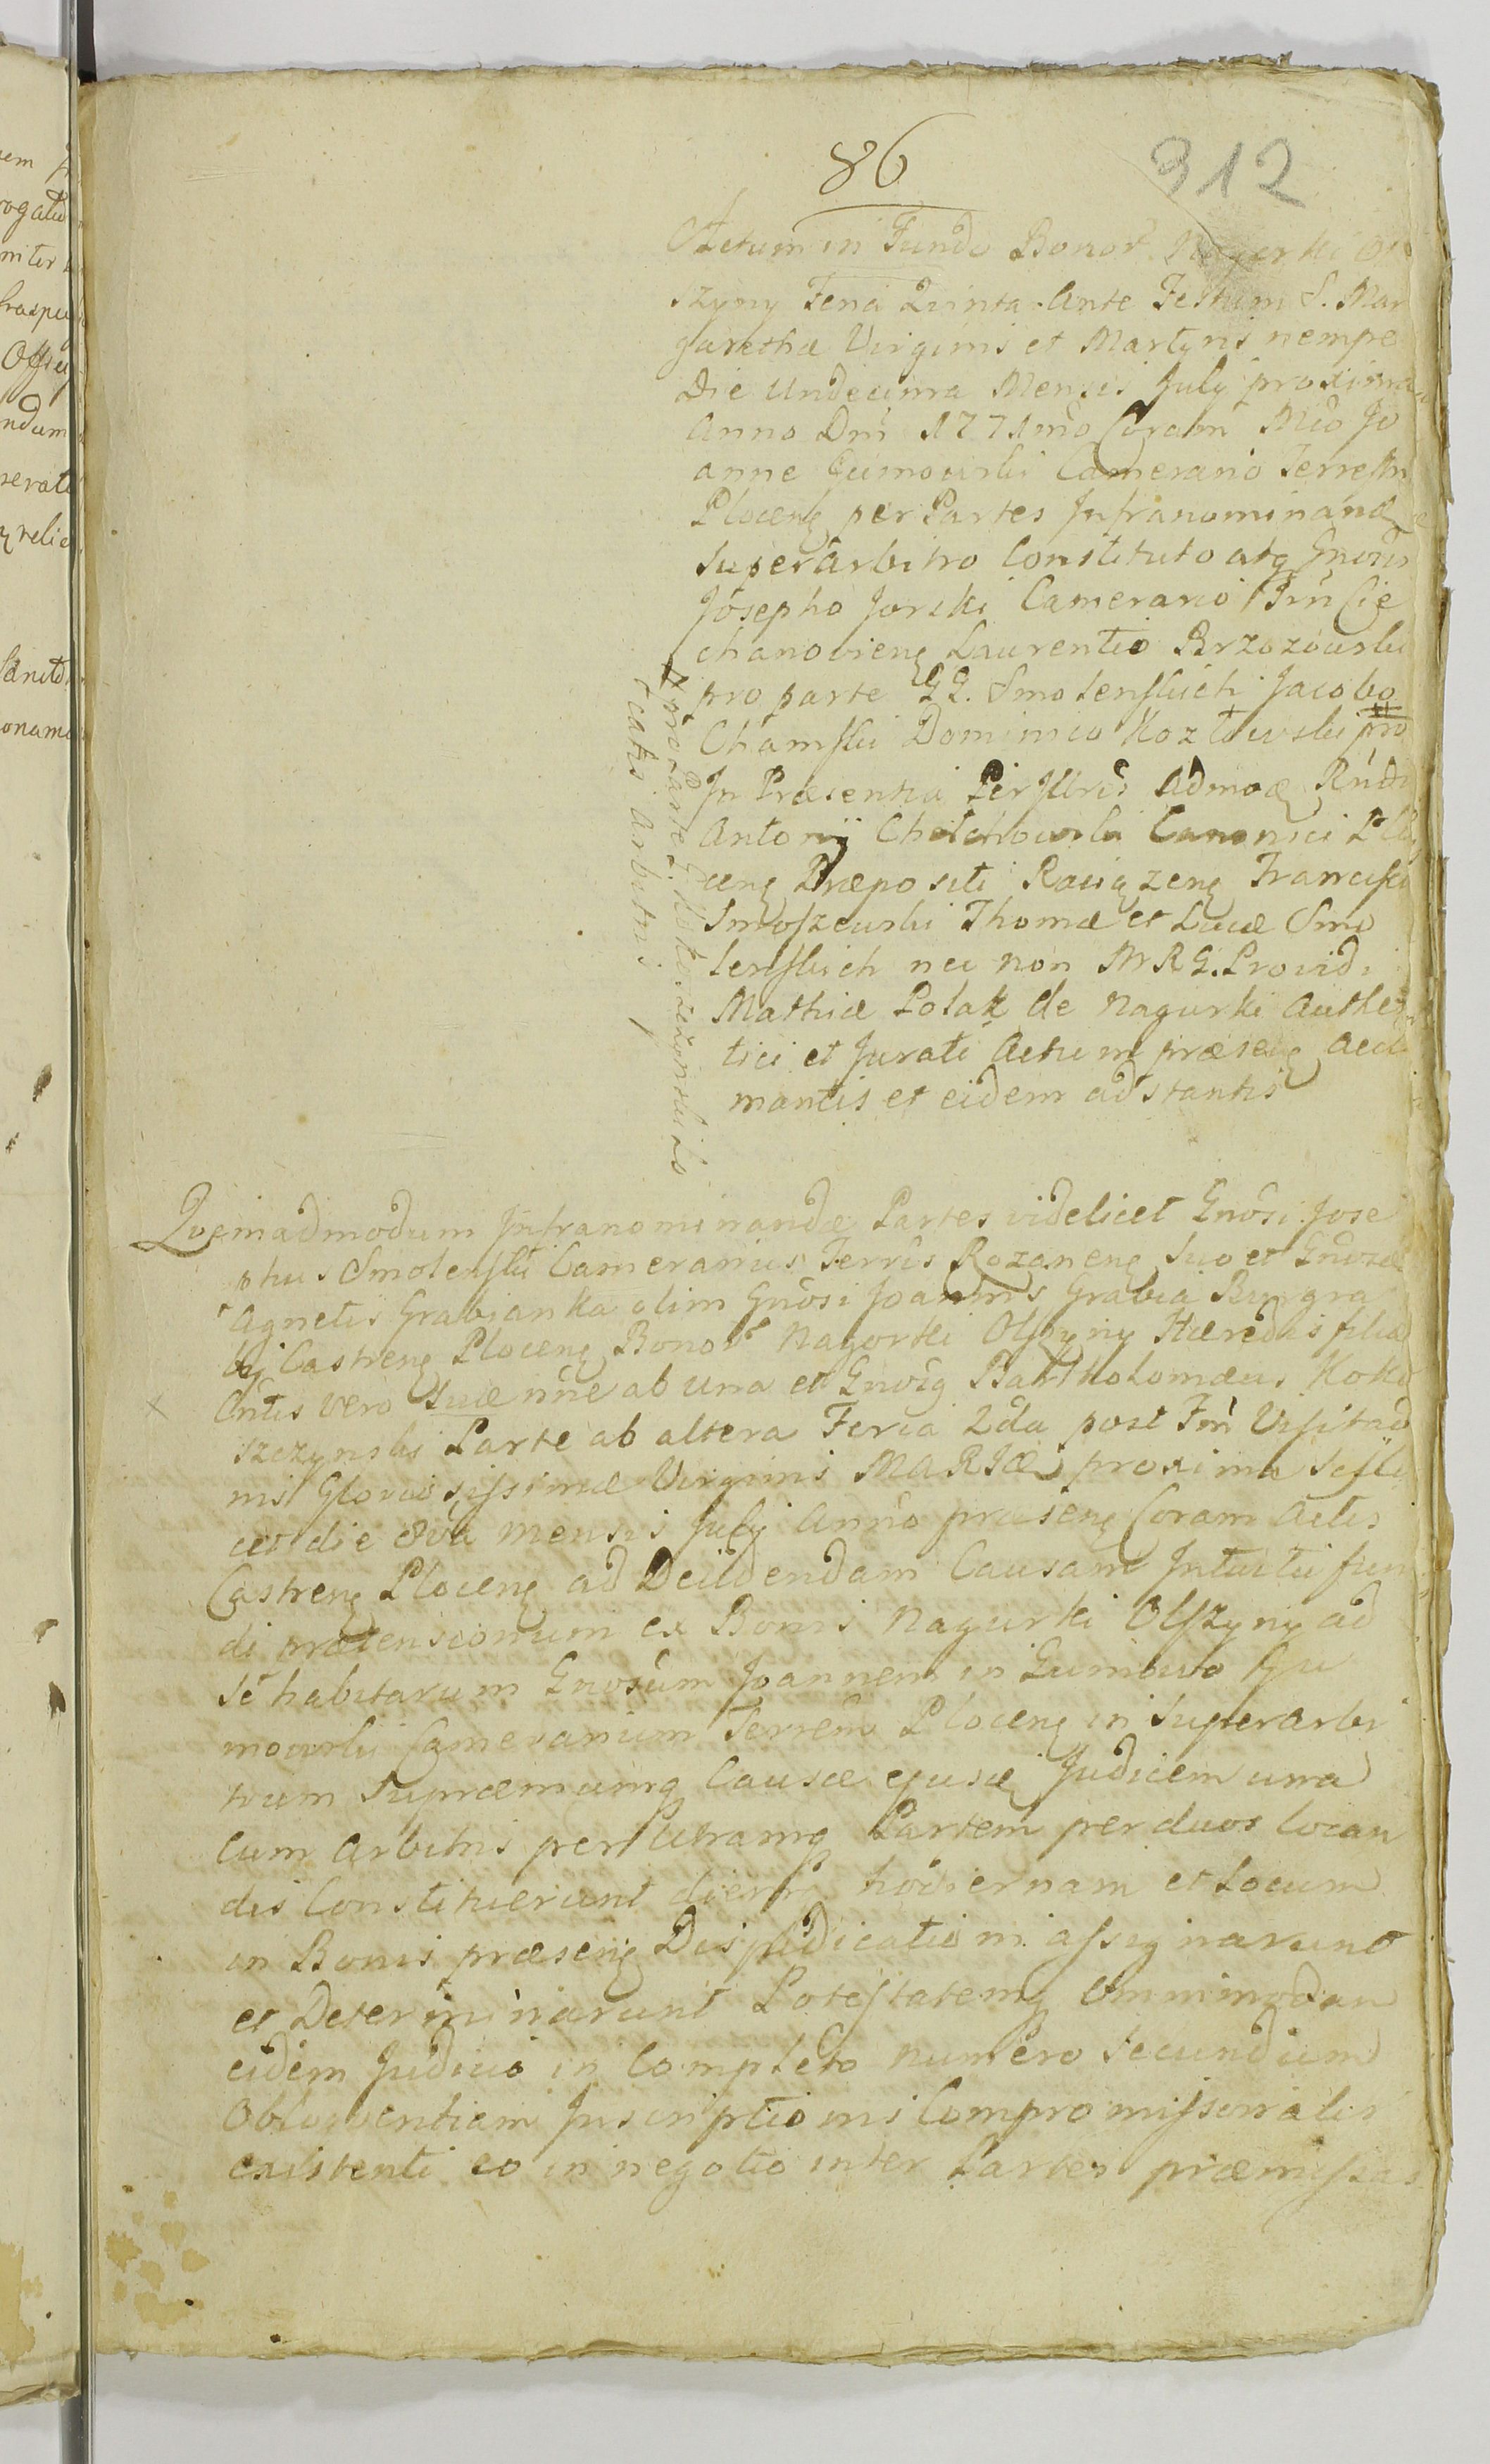 86
312
Actum in Fundo Bonor Nagorki Ol
szyny Feria Quinta Ante Festum S. Mar
garethæ Virginis et Martyris nempe
Die Undecima Mensis July proxima
Anno Dni 1771mo Coram Mco Jo
anne Gumowski Camerario Terrestri
Plocenę per Partes Infranominandæ
Superarbitro Constituto atq Gnoris
Josepho Jorski Camerario Trn Cie
chanovienę Laurentio Brzozowski
pro parte GG. Smolenskich Jacobo
Chamski Dominico Kozłowski pro
In Præsentia Perillris Admo Rndi
Antonij Chełchowski Canonici Plo
cenę Præpositi Raciązenę Francisci
Smoszewski Thomæ et Lucæ Smo
lenskich nec non MRG. Providi
Mathiæ Polak de Nagurki Authen
tici et Jurati Actum præsenę accla
mantis et eidem adstantis
pro Parte G. Kokoszczynski Lo
catis arbitris
Quemadmodum Infranominandæ Partes videlicet Gnosi Jose
phus Smolenski Camerarius Terris Rozanenę Suo et Gnosæ
Agnetis Grabianka olim Gnosi Joannis Grabia Burgra
bij Castrenę Plocenę Bonor Nagorki Olszyny Hæredis filiæ
Cntis vero Suæ nne ab una et Gnosę Bartholomæus Koko
szczynski Parte ab altera Feria 2da post Fm Visitao
nis Gloriosissimæ Virginis MARIÆ proxima scili
cet die 8va mensis July Anno præsenę Coram Actis
Castrenę Plocenę ad Decidendam Causam Intuitu fun
di prætensionum ex Bonis Nagurki Olszyny ad
se habitarum Gnosum Joannem in Gumowo Gu
mowski Camerarium Terrem Plocenę in Superarbi
trum Supræmumq Causæ ejusę Judicem una
Cum Arbitris per Utramq Partem per duos locan
dis Constituerunt diemę hodiernam et Locum
in Bonis præsenę Disjudicationi assignarunt
et Determinarunt Potestatemq Omnimodam
eidem Judicio in Completo numero Secundum
Obloquentiam Inscriptionis Compromissorialis
existenti eo in negotio inter Partes præmissas